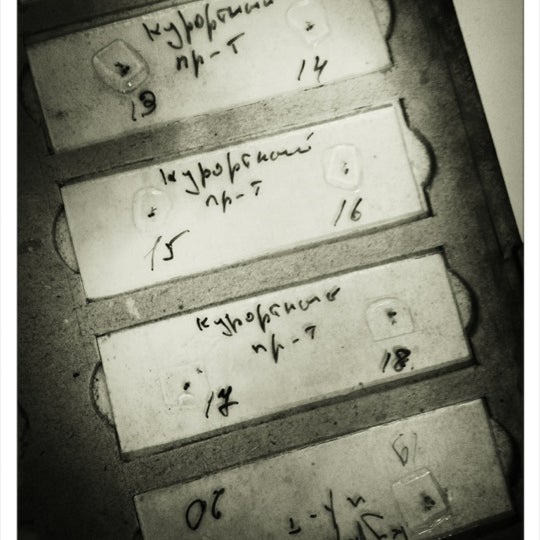 курортный
пр-т
13
14
курортный
пр-т
15
16
курортный
пр-т
17
18
19
20